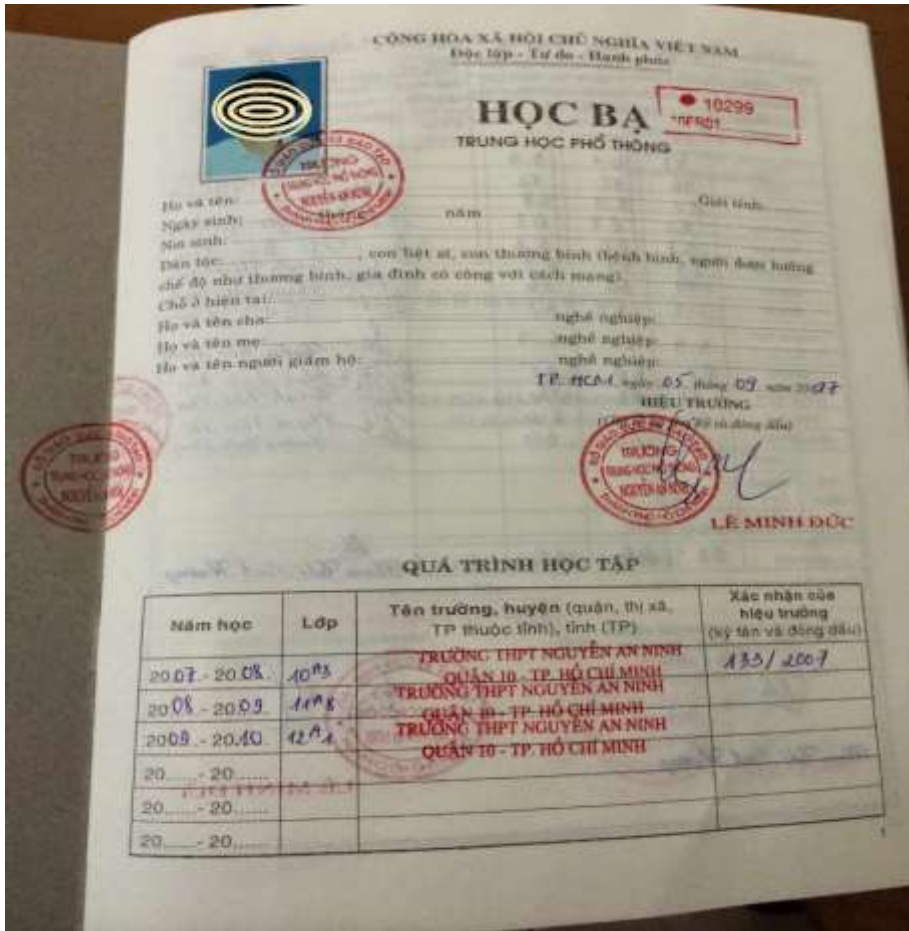 CỘNG HÒA XÃ HỘI CHỦ NGHĨA VIỆT NAM
Độc lập - Tự do - Hạnh phúc
HỌC BẠ
10299
TRUNG HỌC PHỔ THÔNG
Họ và tên: Giới tính:
Ngày sinh: tháng năm
Nơi sinh:
Dân tộc: , con liệt sĩ, con thương binh (bệnh binh, người được hưởng
chế độ như thương binh, gia đình có công với cách mạng):
Chỗ ở hiện tại:
Họ và tên cha: nghề nghiệp:
Họ và tên mẹ: nghề nghiệp:
Họ và tên người giám hộ: nghề nghiệp:
TP. HCM, ngày 05 tháng 09 năm 2007
HIỆU TRƯỞNG
TRƯỜNG
LÊ MINH ĐỨC
QUÁ TRÌNH HỌC TẬP
Năm học Lớp Tên trường, huyện (quận, thị xã, TP thuộc tỉnh), tỉnh (TP) Xác nhận của hiệu trưởng (ký tên và đóng dấu)
2007 - 2008 10A3 TRƯỜNG THPT NGUYỄN AN NINH
QUẬN 10 - TP. HỒ CHÍ MINH
2008 - 2009 11A8 TRƯỜNG THPT NGUYỄN AN NINH
QUẬN 10 - TP. HỒ CHÍ MINH
2009 - 2010 12A1 TRƯỜNG THPT NGUYỄN AN NINH
QUẬN 10 - TP. HỒ CHÍ MINH
20......- 20......
20......- 20......
20......- 20......
1